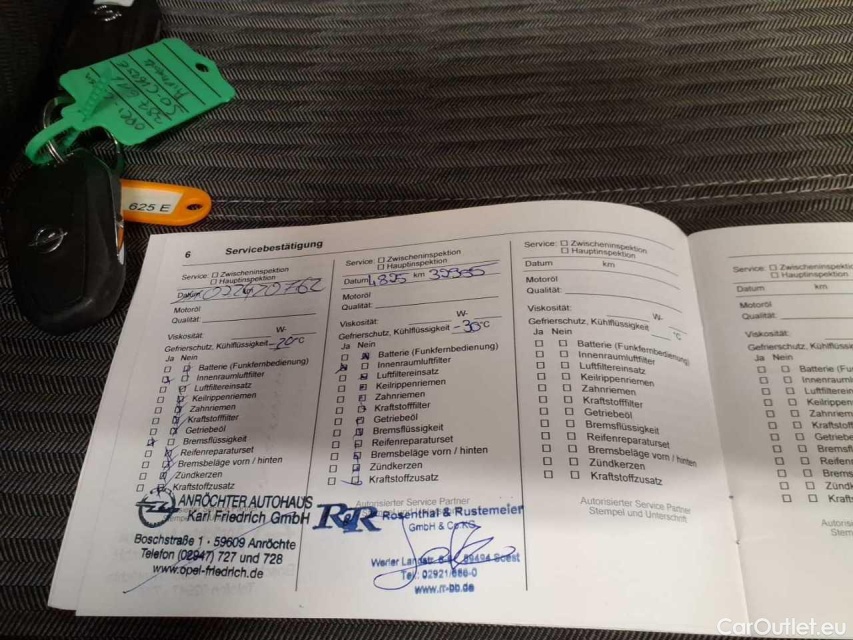 625 E
6 Servicebestätigung
Service: ☐ Zwischeninspektion
☐ Hauptinspektion
Datum
Motoröl
Qualität:
Viskosität: W-
Gefrierschutz, Kühlflüssigkeit -20°C
Ja Nein
Batterie (Funkfernbedienung)
Innenraumluftfilter
Luftfiltereinsatz
Keilrippenriemen
Zahnriemen
Kraftstofffilter
Getriebeöl
Bremsflüssigkeit
Reifenreparaturset
Bremsbeläge vorn / hinten
Zündkerzen
Kraftstoffzusatz
ANRÖCHTER AUTOHAUS
Karl Friedrich GmbH
Boschstraße 1 · 59609 Anröchte
Telefon (02947) 727 und 728
www.opel-friedrich.de
Service: ☐ Zwischeninspektion
☐ Hauptinspektion
Datum km
Motoröl
Qualität:
Viskosität: W-
Gefrierschutz, Kühlflüssigkeit -30°C
Ja Nein
Batterie (Funkfernbedienung)
Innenraumluftfilter
Luftfiltereinsatz
Keilrippenriemen
Zahnriemen
Kraftstofffilter
Getriebeöl
Bremsflüssigkeit
Reifenreparaturset
Bremsbeläge vorn / hinten
Zündkerzen
Kraftstoffzusatz
Autorisierter Service Partner
R&R Rosenthal & Rustemeier
GmbH & Co. KG
59494 Soest
www.rr-bb.de
Service: ☐ Zwischeninspektion
☐ Hauptinspektion
Datum km
Motoröl
Qualität:
Viskosität: W-
Gefrierschutz, Kühlflüssigkeit °C
Ja Nein
Batterie (Funkfernbedienung)
Innenraumluftfilter
Luftfiltereinsatz
Keilrippenriemen
Zahnriemen
Kraftstofffilter
Getriebeöl
Bremsflüssigkeit
Reifenreparaturset
Bremsbeläge vorn / hinten
Zündkerzen
Kraftstoffzusatz
Autorisierter Service Partner
Stempel und Unterschrift
Service: ☐ Zwischeninspektion
☐ Hauptinspektion
Datum km
Motoröl
Qualität:
Viskosität:
Gefrierschutz, Kühlflüss
Ja Nein
Batterie (Fu
Innenrauml
Luftfilterein
Keilrippen
Zahnriem
Kraftstoff
Getriebe
Bremsfl
Reifen
Brems
Zünd
Kraft
Autoris
Stem
CarOutlet.eu